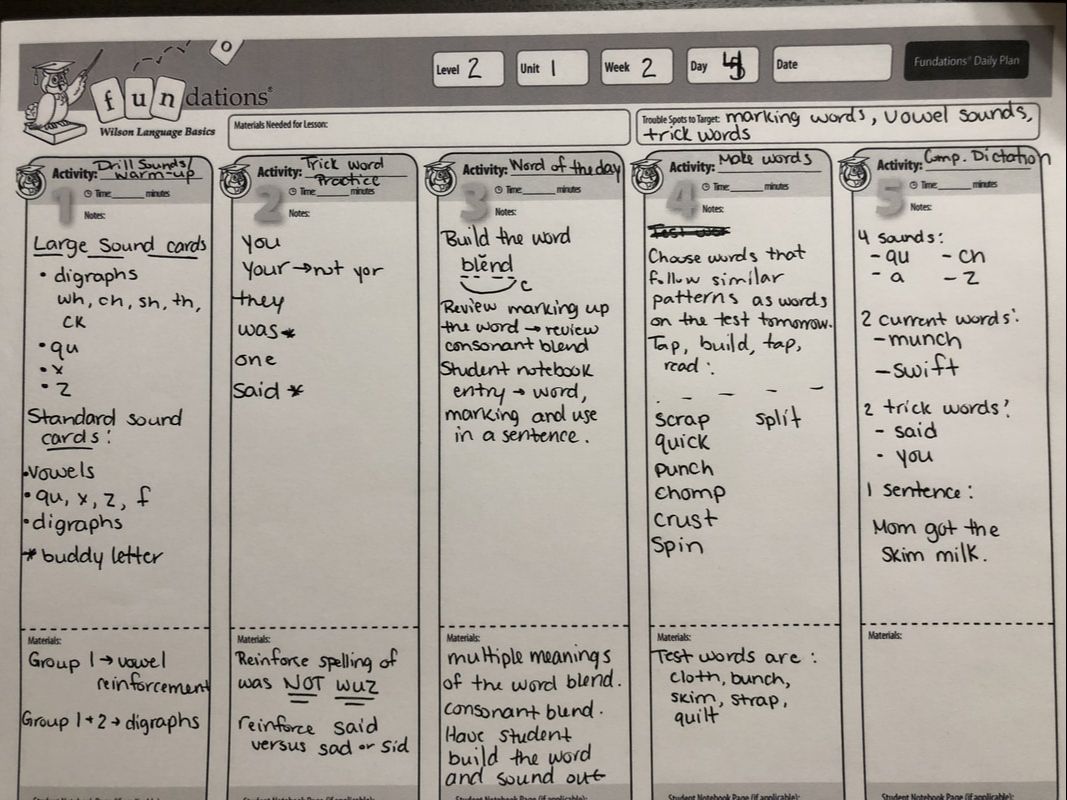 Level 2
Unit 1
Week 2
Day 4
Date
Fundations® Daily Plan
fundations®
Wilson Language Basics
Materials Needed for Lesson:
Trouble Spots to Target: marking words, vowel sounds,
trick words
Activity: Drill Sounds/
Warm-up
Time minutes
1
Notes:
Large Sound cards
• digraphs
wh, ch, sh, th,
ck
• qu
• x
• z
Standard sound
cards:
• vowels
• qu, x, z, f
• digraphs
* buddy letter
Materials:
Group 1 → vowel
reinforcement
Group 1 + 2 → digraphs
Student Notebook Page (if applicable)
Activity: Trick Word
Practice
Time minutes
2
Notes:
you
your → not yor
they
was *
one
said *
Materials:
Reinforce spelling of
was NOT wuz
reinforce said
versus sad or sid
Student Notebook Page (if applicable)
Activity: Word of the day
Time minutes
3
Notes:
Build the word
blĕnd
c
Review marking up
the word → review
consonant blend
Student notebook
entry → word,
marking and use
in a sentence.
Materials:
multiple meanings
of the word blend.
consonant blend.
Have student
build the word
and sound out
Student Notebook Page (if applicable)
Activity: Make words
Time minutes
4
Notes:
Choose words that
follow similar
patterns as words
on the test tomorrow.
Tap, build, tap,
read:
scrap split
quick
punch
chomp
crust
spin
Materials:
Test words are:
cloth, bunch,
skim, strap,
quilt
Student Notebook Page (if applicable)
Activity: Comp. Dictation
Time minutes
5
Notes:
4 sounds:
- qu - ch
- a - z
2 current words:
- munch
- swift
2 trick words:
- said
- you
1 sentence:
Mom got the
skim milk.
Materials:
Student Notebook Page (if applicable)